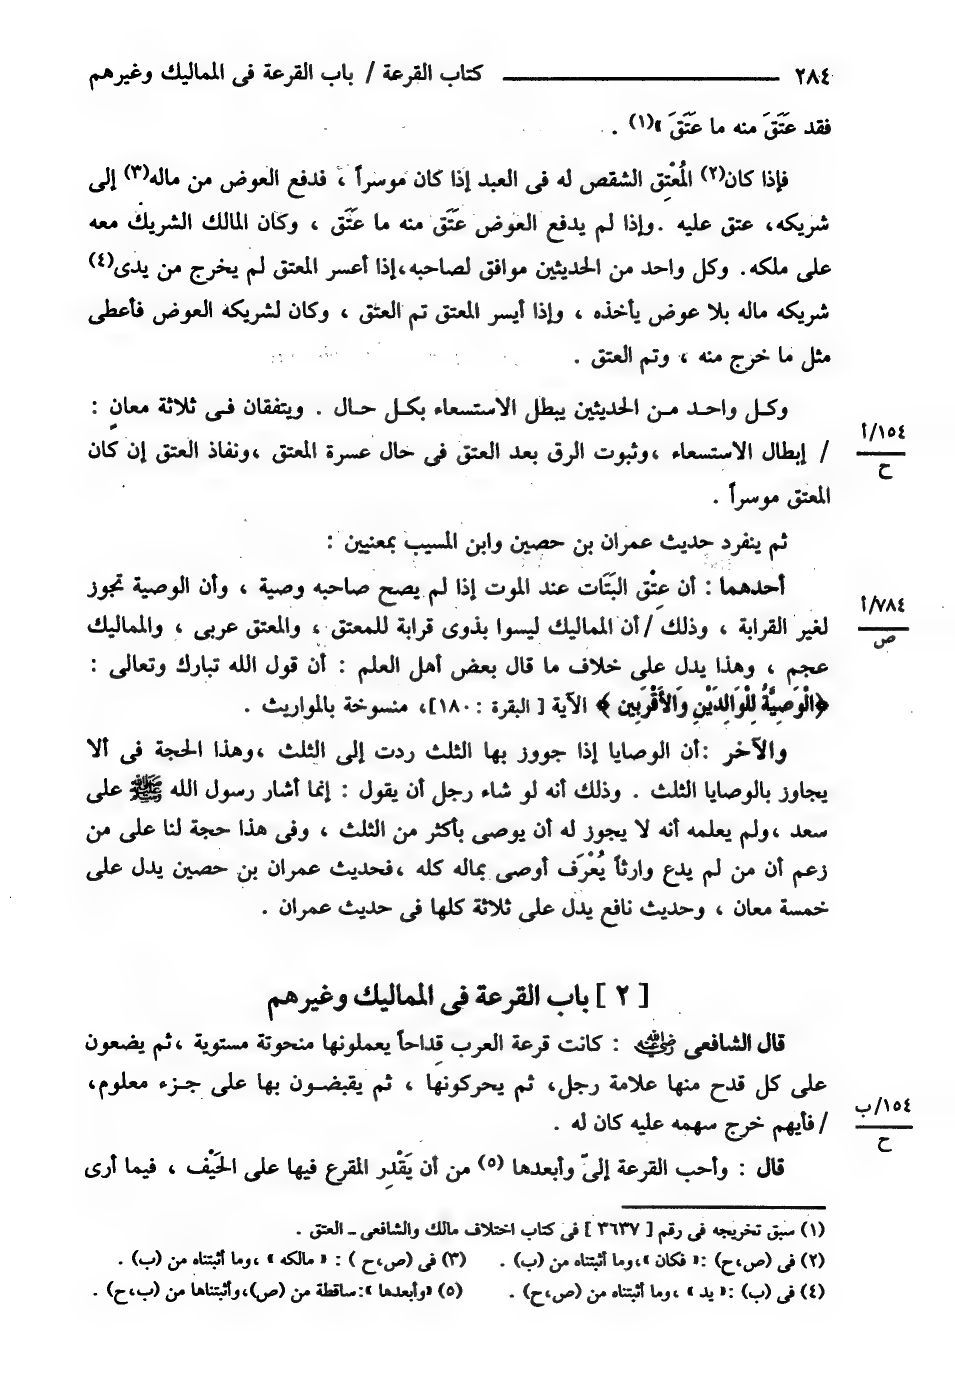 ٢٨٤ ــــــــــــــــــــ كتاب القرعة / باب القرعة فى المماليك وغيرهم
فقد عَتَقَ منه ما عَتَقَ »(١) .
فإذا كان(٢) المُعْتِق الشقص له فى العبد إذا كان موسراً ، فدفع العوض من ماله(٣) إلى
شريكه، عتق عليه .وإذا لم يدفع العوض عَتَق منه ما عَتَق ، وكان المالك الشريك معه
على ملكه. وكل واحد من الحديثين موافق لصاحبه،إذا أعسر المعتق لم يخرج من يدى(٤)
شريكه ماله بلا عوض يأخذه ، وإذا أيسر المعتق تم العتق ، وكان لشريكه العوض فأعطى
مثل ما خرج منه ، وتم العتق .
وكل واحد من الحديثين يبطل الاستسعاء بكل حال . ويتفقان فى ثلاثة معانٍ :
١٥٤/أ
ح
/ إبطال الاستسعاء ،وثبوت الرق بعد العتق فى حال عسرة المعتق ،ونفاذ العتق إن كان
المعتق موسراً .
ثم ينفرد حديث عمران بن حصين وابن المسيب بمعنيين :
أحدهما : أن عِتْق البَتَات عند الموت إذا لم يصح صاحبه وصية ، وأن الوصية تجوز
٧٨٤/أ
ص
لغير القرابة ، وذلك /أن المماليك ليسوا بذوى قرابة للمعتق ، والمعتق عربى ، والمماليك
عجم ، وهذا يدل على خلاف ما قال بعض أهل العلم : أن قول الله تبارك وتعالى :
﴿الْوَصِيَّةُ لِلْوَالِدَيْنِ وَالأَقْرَبِين ﴾ الآية [ البقرة : ١٨٠]، منسوخة بالمواريث .
والآخر :أن الوصايا إذا جووز بها الثلث ردت إلى الثلث ،وهذا الحجة فى ألا
يجاوز بالوصايا الثلث . وذلك أنه لو شاء رجل أن يقول : إنما أشار رسول الله ﷺ على
سعد ،ولم يعلمه أنه لا يجوز له أن يوصى بأكثر من الثلث ، وفى هذا حجة لنا على من
زعم أن من لم يدع وارثاً يُعْرَف أوصى بماله كله ،فحديث عمران بن حصين يدل على
خمسة معان ، وحديث نافع يدل على ثلاثة كلها فى حديث عمران .
[ ٢ ] باب القرعة فى المماليك وغيرهم
قال الشافعى رضي الله عنه : كانت قرعة العرب قِداحاً يعملونها منحوتة مستوية ،ثم يضعون
على كل قدح منها علامة رجل، ثم يحركونها ، ثم يقبضون بها على جزء معلوم،
١٥٤/ب
ح
/فأيهم خرج سهمه عليه كان له .
قال : وأحب القرعة إلىّ وأبعدها (٥) من أن يَقْدِر المقرع فيها على الحَيْف ، فيما أرى
(١) سبق تخريجه فى رقم [ ٣٦٣٧ ] فى كتاب اختلاف مالك والشافعى ـ العتق .
(٢) فى (ص،ح) :« فكان »،وما أثبتناه من (ب) . (٣) فى (ص،ح ) : « مالكه » ،وما أثبتناه من (ب) .
(٤) فى (ب) :« يد » ،وما أثبتناه من (ص،ح) . (٥) «وأبعدها »:ساقطة من (ص)،وأثبتناها من (ب،ح) .